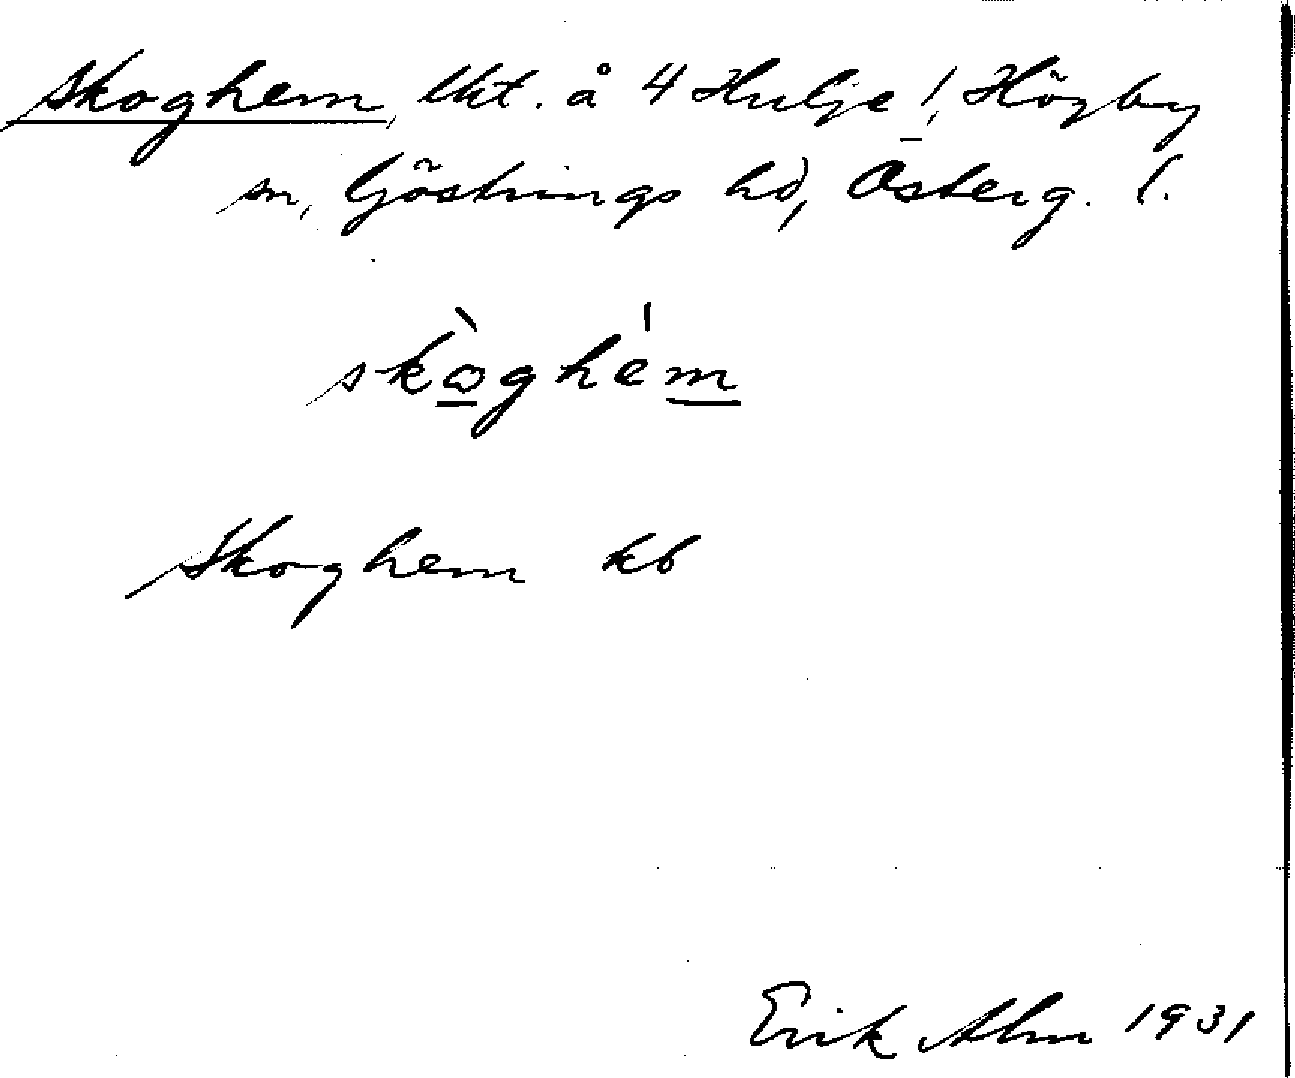 Skoghem, lht. å 4 Hulje !, Högby
sn, Göstrings hd, Österg. l.
skòghém
Skoghem kb
Erik Alm 1931